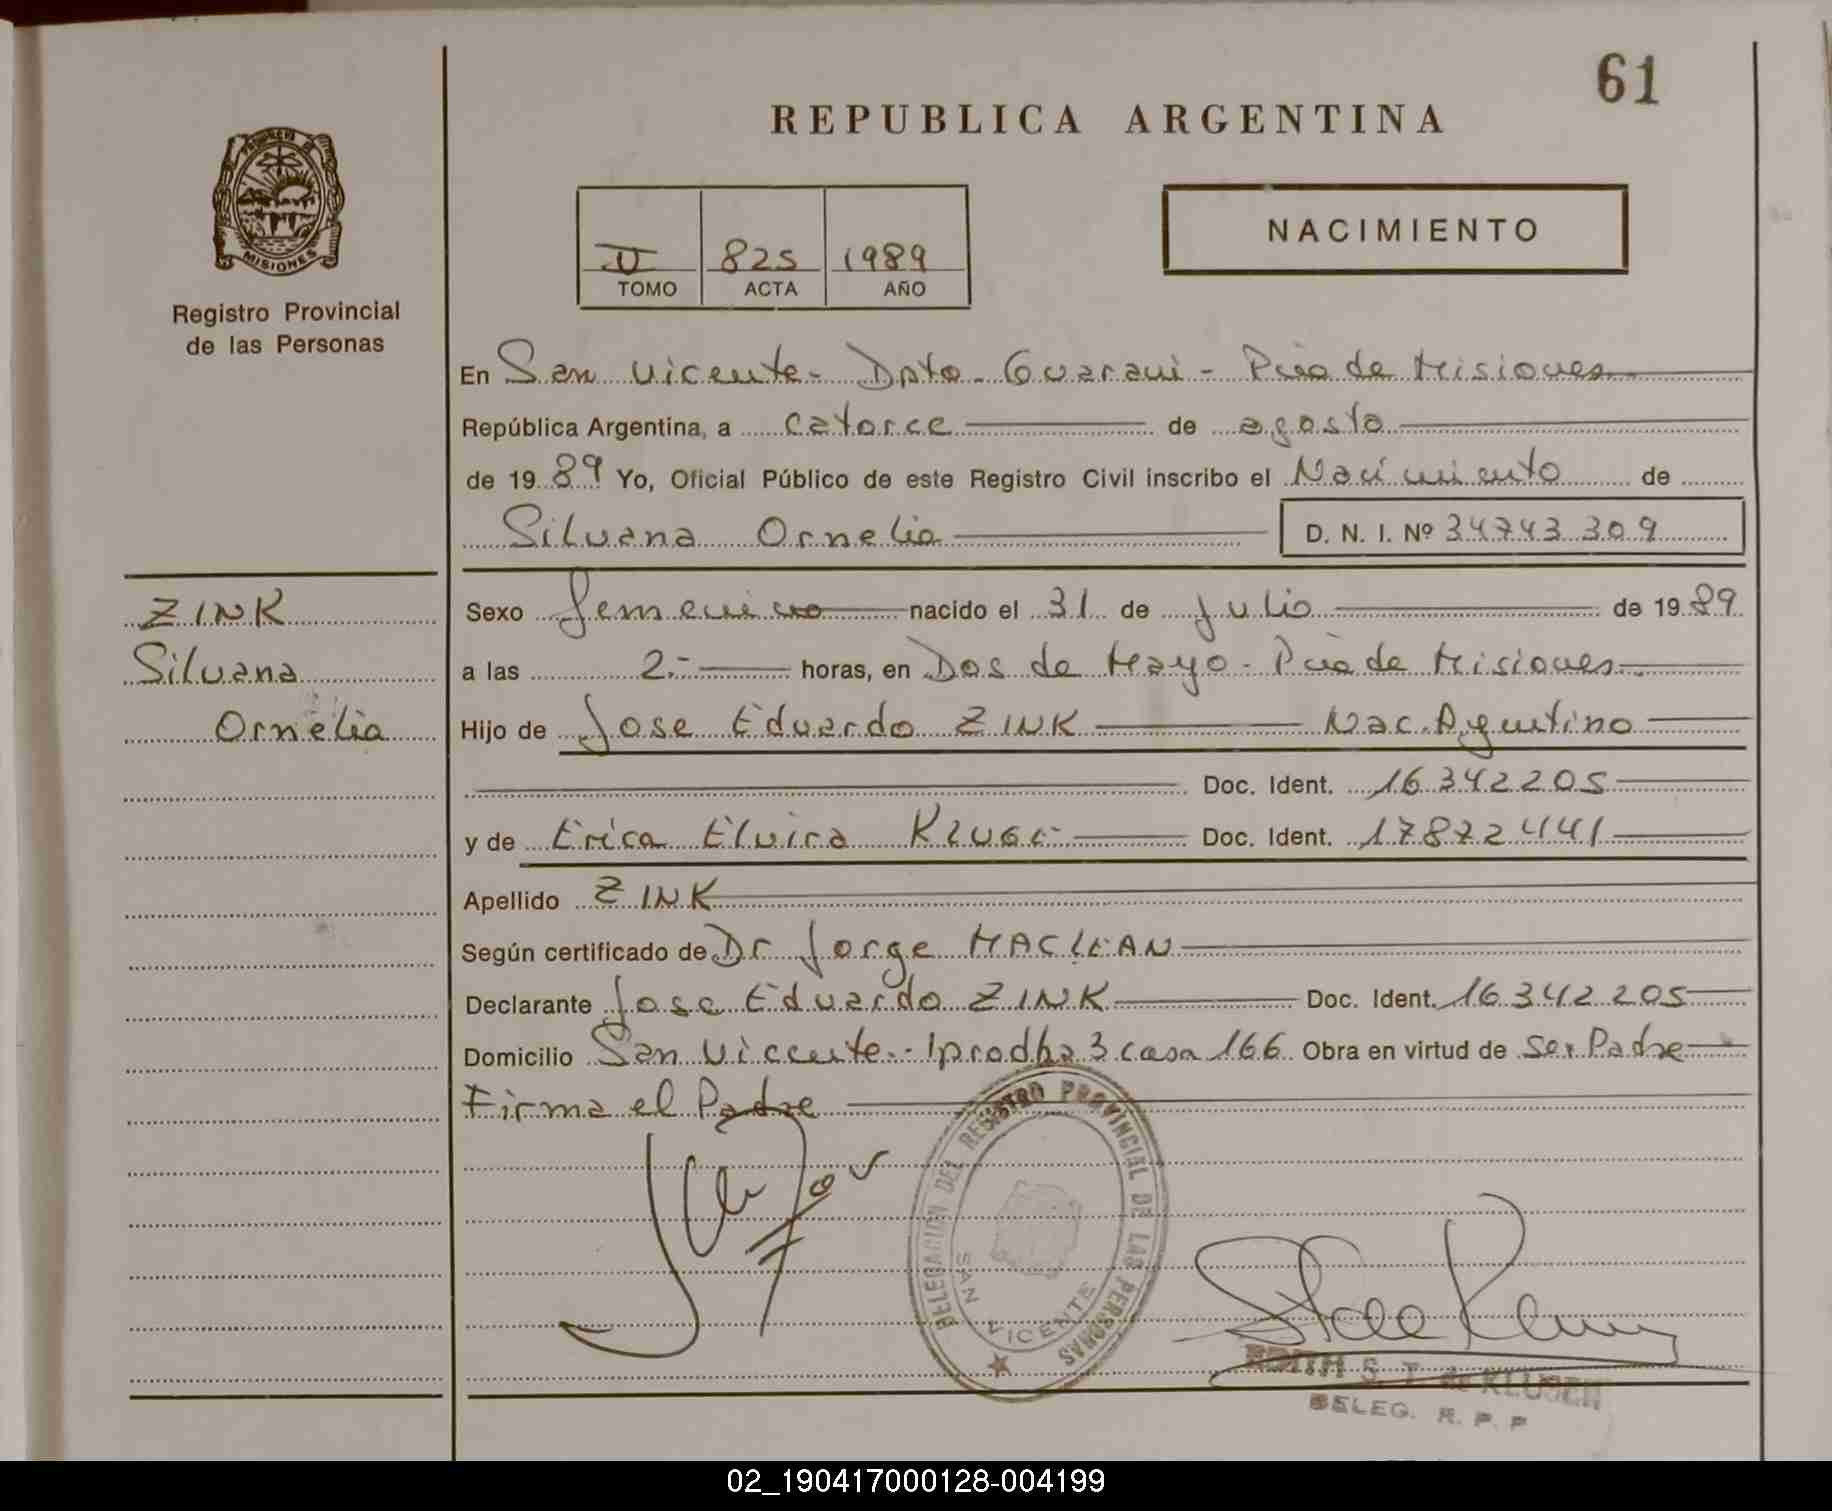 61
REPUBLICA ARGENTINA
PROVINCIA DE
MISIONES
Registro Provincial
de las Personas
II 825 1989
TOMO ACTA AÑO
NACIMIENTO
En San Vicente - Dpto. Guarani - Pcia de Misiones
República Argentina, a catorce de agosto
de 19 89 Yo, Oficial Público de este Registro Civil inscribo el Nacimiento de
Silvana Ornelia D. N. I. Nº 34743309
ZINK
Silvana
Ornelia
Sexo femenino nacido el 31 de Julio de 19 89
a las 2.- horas, en Dos de Mayo - Pcia de Misiones
Hijo de Jose Eduardo ZINK Nac. Argentino
Doc. Ident. 16342205
y de Erica Elvira KLUGE Doc. Ident. 17872441
Apellido ZINK
Según certificado de Dr Jorge MACLEAN
Declarante Jose Eduardo ZINK Doc. Ident. 16342205
Domicilio San Vicente.- Iprodha 3 casa 166 Obra en virtud de ser Padre
Firma el Padre
DELEGACION DEL REGISTRO PROVINCIAL DE LAS PERSONAS
SAN VICENTE
EDITH S. T. de
DELEG. R. P. P
02_190417000128-004199